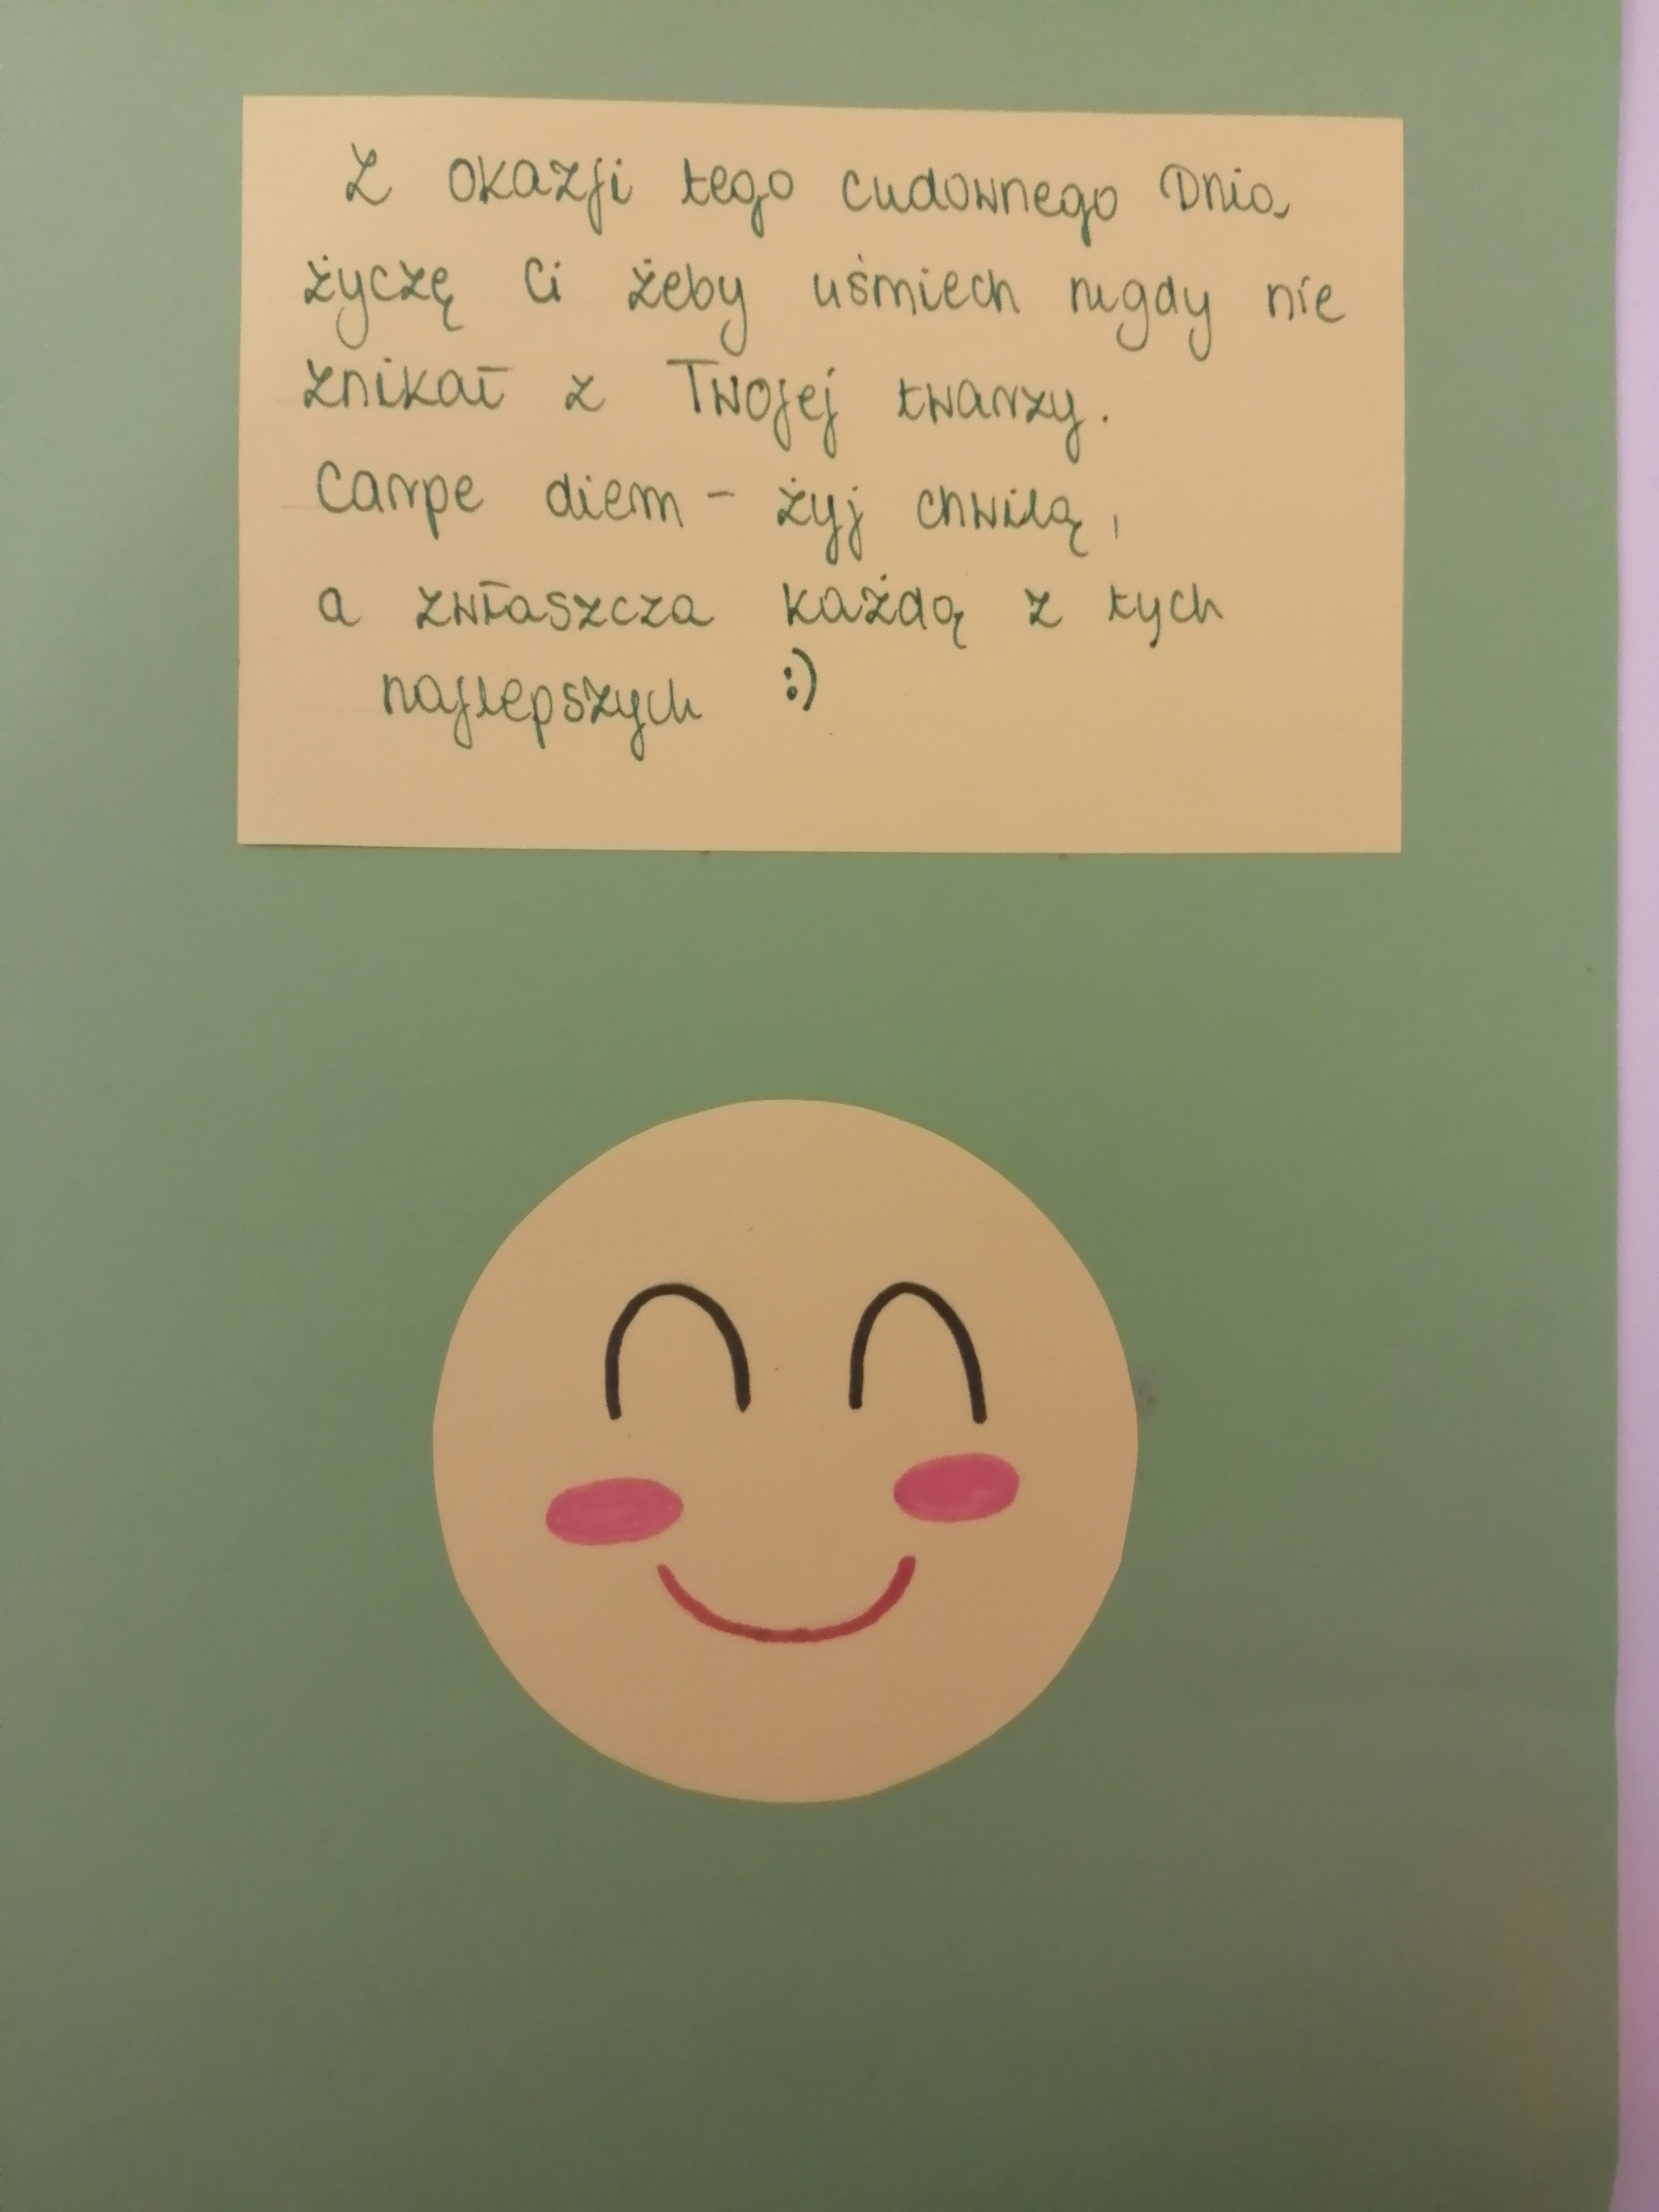 Z okazji tego cudownego Dnia
życzę Ci żeby uśmiech nigdy nie
znikał z Twojej twarzy.
Carpe diem - żyj chwilą,
a zwłaszcza każdą z tych
najlepszych :)